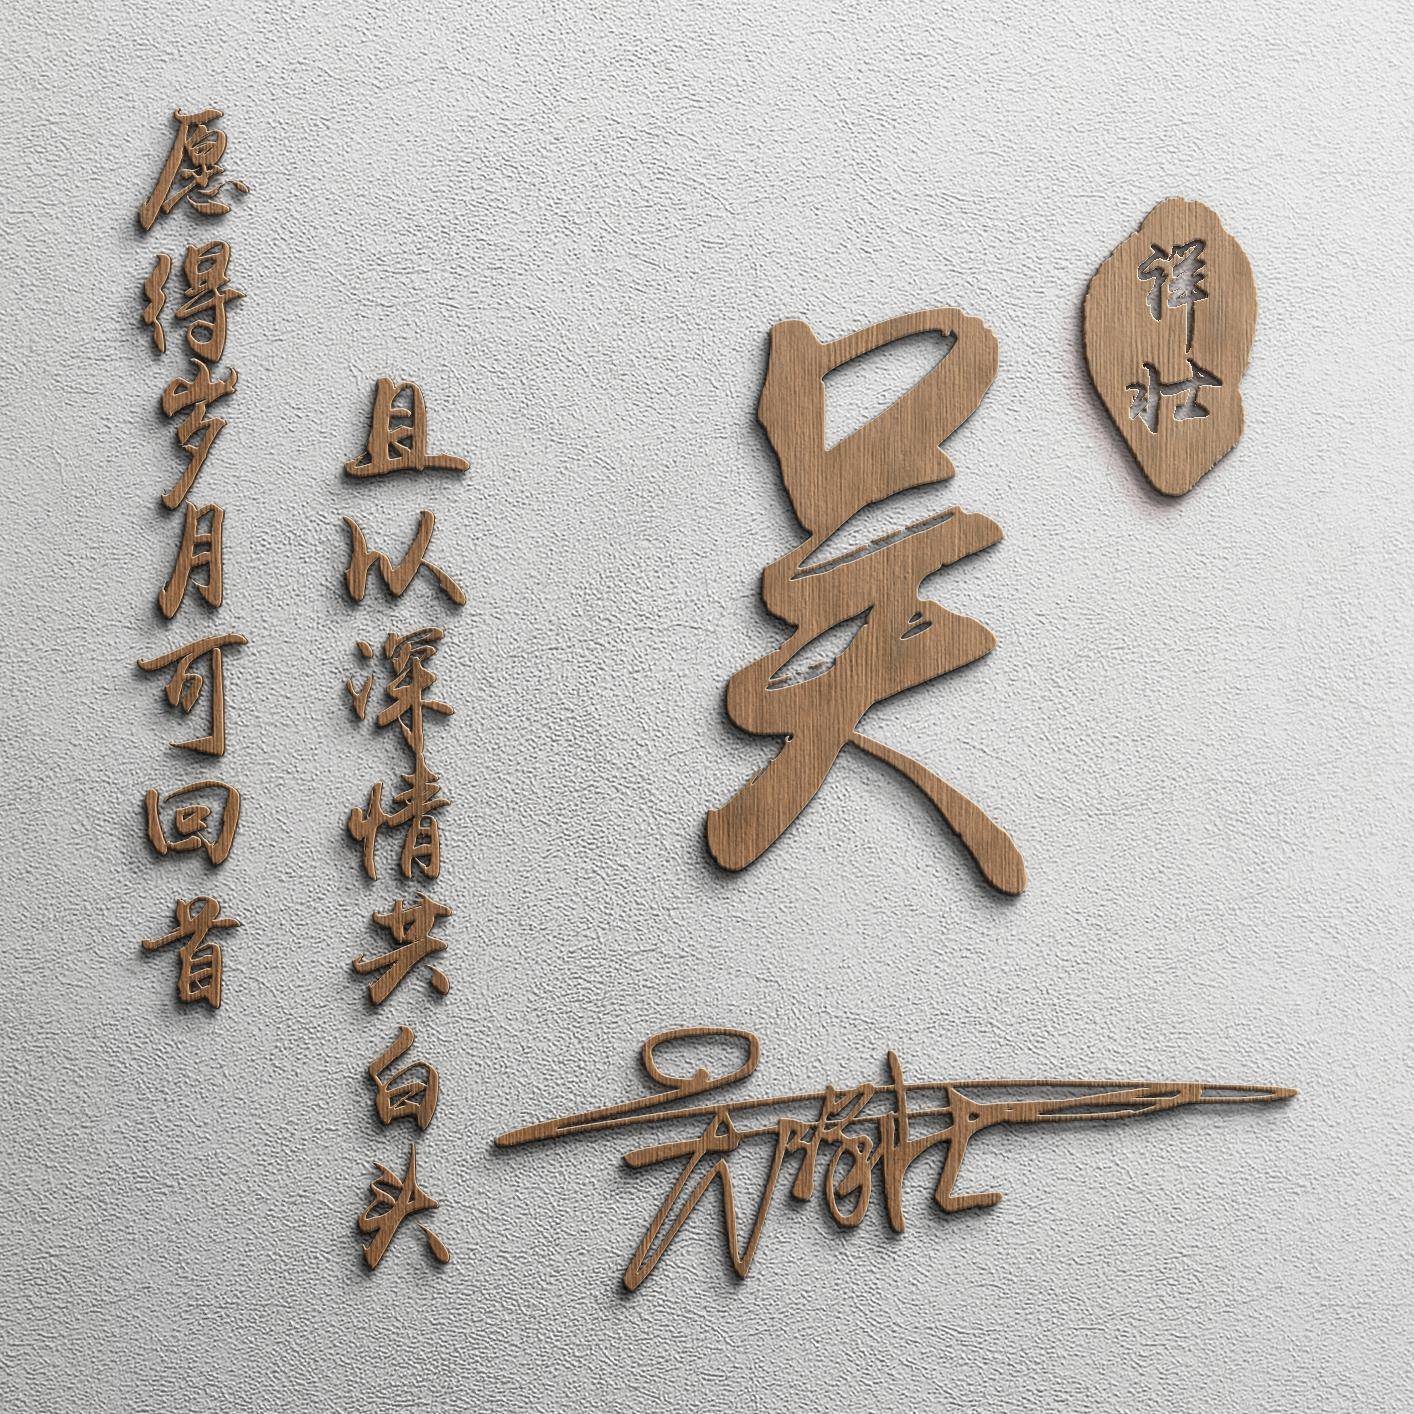 愿得岁月可回首
且以深情共白头
吴
祥壮
吴祥壮